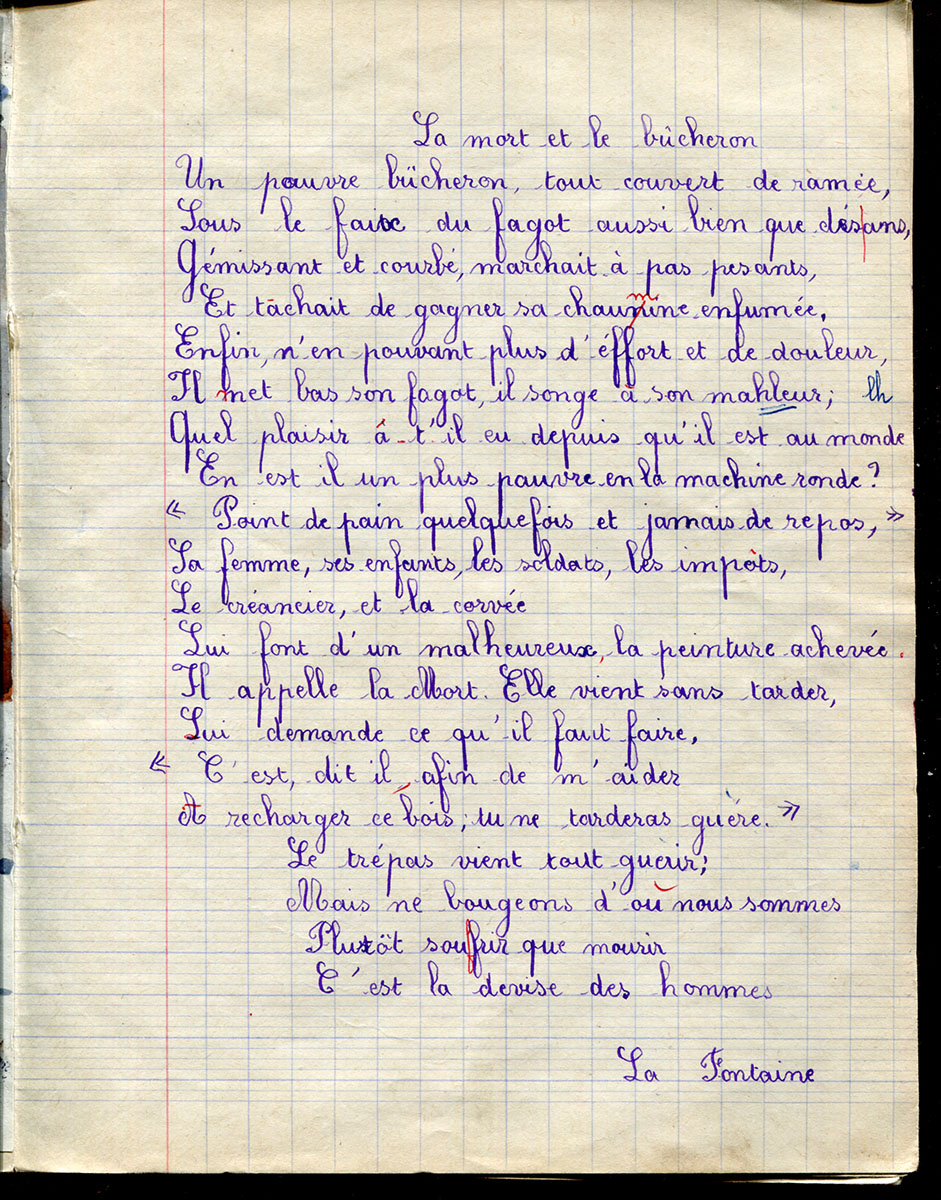 La mort et le bûcheron
Un pauvre bûcheron, tout couvert de ramée,
Sous le faix du fagot aussi bien que des ans,
Gémissant et courbé, marchait à pas pesants,
Et tâchait de gagner sa chaumine enfumée.
Enfin, n'en pouvant plus d'éffort et de douleur,
Il met bas son fagot, il songe à son mahleur; lh
Quel plaisir á-t'il eu depuis qu'il est au monde
En est il un plus pauvre en la machine ronde?
« Point de pain quelquefois et jamais de repos, »
Sa femme, ses enfants, les soldats, les impôts,
Le créancier, et la corvée
Lui font d'un malheureux, la peinture achevée.
Il appelle la Mort. Elle vient sans tarder,
Lui demande ce qu'il faut faire,
« C'est, dit il, afin de m'aider
A recharger ce bois; tu ne tarderas guère. »
Le trépas vient tout guérir;
Mais ne bougeons d'où nous sommes
Plutôt soufrir que mourir
C'est la devise des hommes
La Fontaine